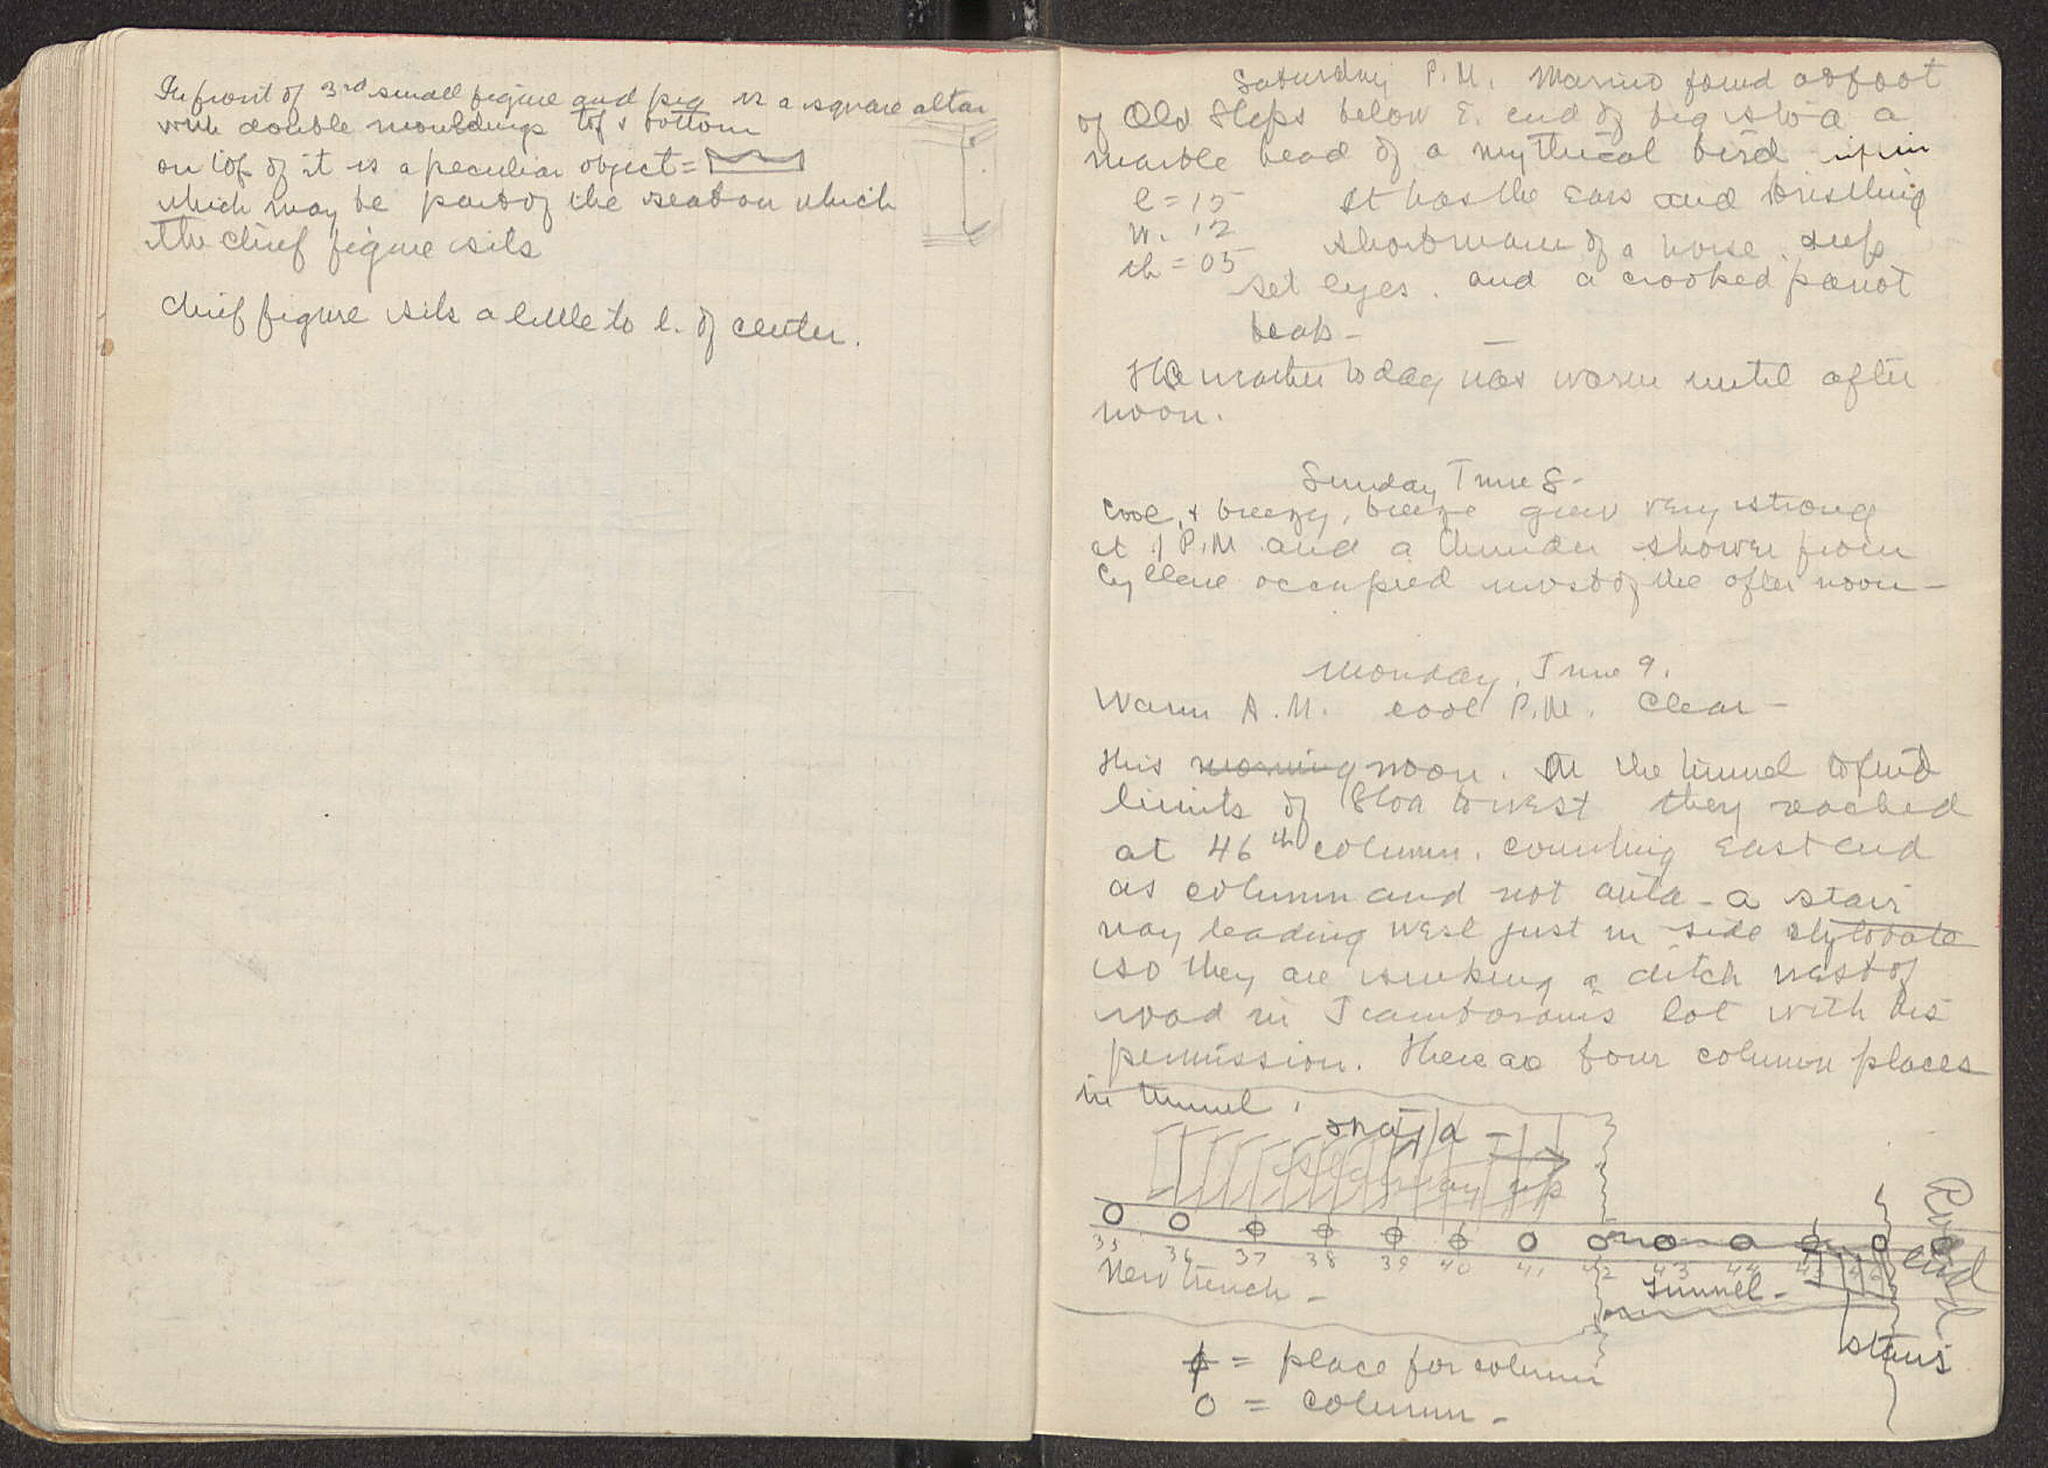 In front of 3rd small figure and pig is a square altar
with double mouldings top & bottom
on top of it is a peculiar object =
which may be part of the seat on which
the chief figure sits
Chief figure sits a little to l. of center.
Saturday P.M. Marino found at foot
of Old Steps below E. end of big stoa a
marble head of a mythical bird
l = 15 It has the ears and bristling
w. 12 short mane of a horse. deep
th = 05
set eyes. and a crooked parrot
beak -
The weather today was warm until after
noon.
Sunday June 8-
Cool, & breezy, breeze grew very strong
at 1 P.M. and a thunder shower from
Cyllene occupied most of the after noon -
Monday, June 9.
Warm A.M. cool P.M. Clear -
This morning noon. In the tunnel to find
limits of Stoa to west they reached
at 46th column. counting East end
as column and not anta - a stair
way leading west just in side stylobate
so they are sinking a ditch west of
road in lot with his
permission. There are four column places
in tunnel.
up
35 36 37 38 39 40 41 42 43 44 45 46
end
Road
New trench -
Tunnel -
stairs
ϕ = place for column
O = column -